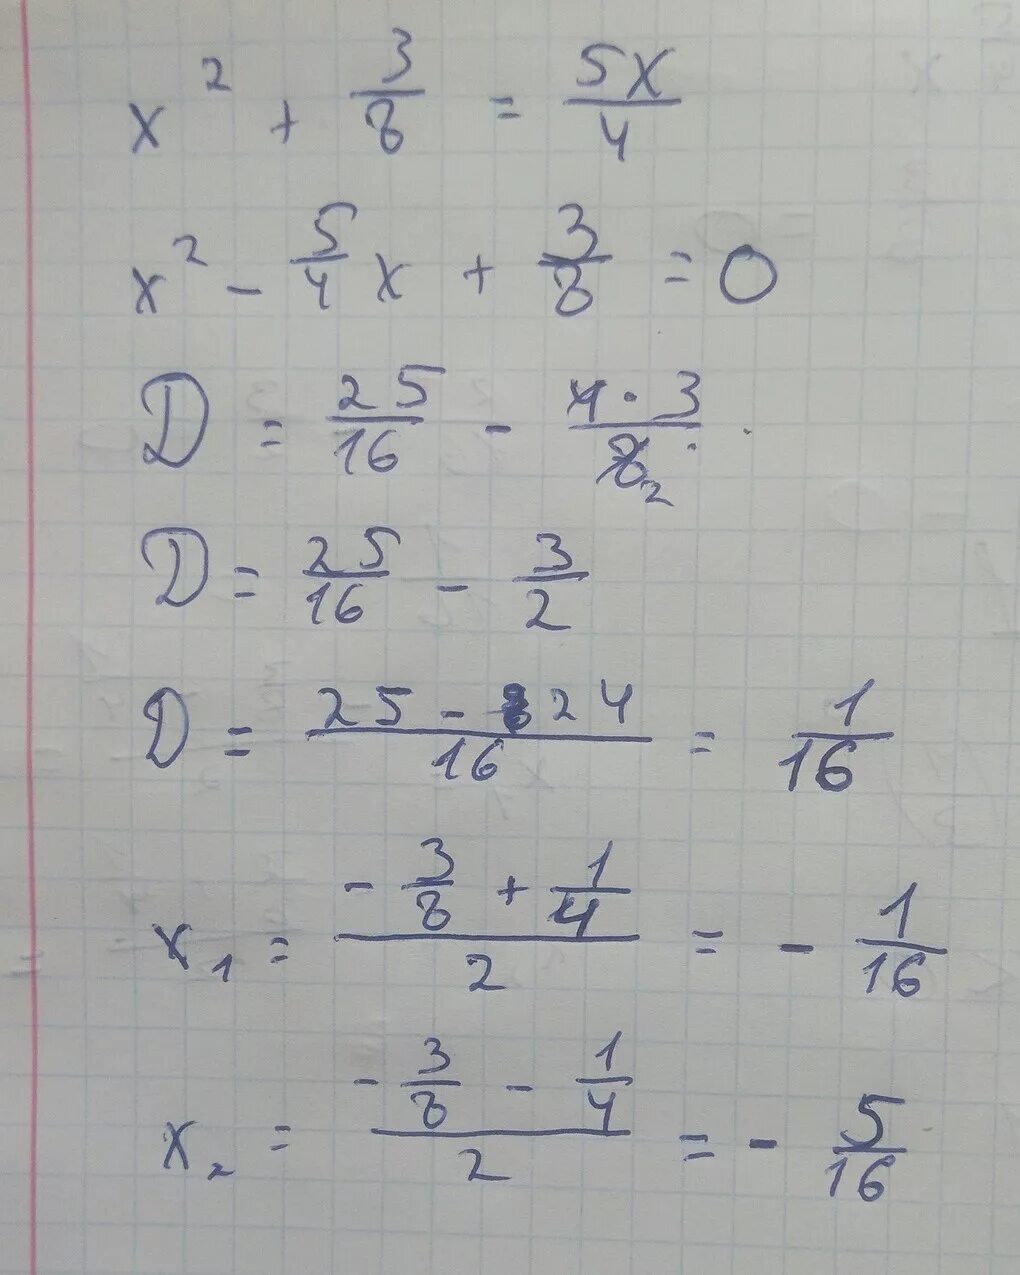 x² + 3/8 = 5x/4
x² - 5/4 x + 3/8 = 0
D = 25/16 - 4·3/8 2
D = 25/16 - 3/2
D = 25 - 24/16 = 1/16
x₁ = (-3/8 + 1/4)/2 = -1/16
x₂ = (-3/8 - 1/4)/2 = -5/16